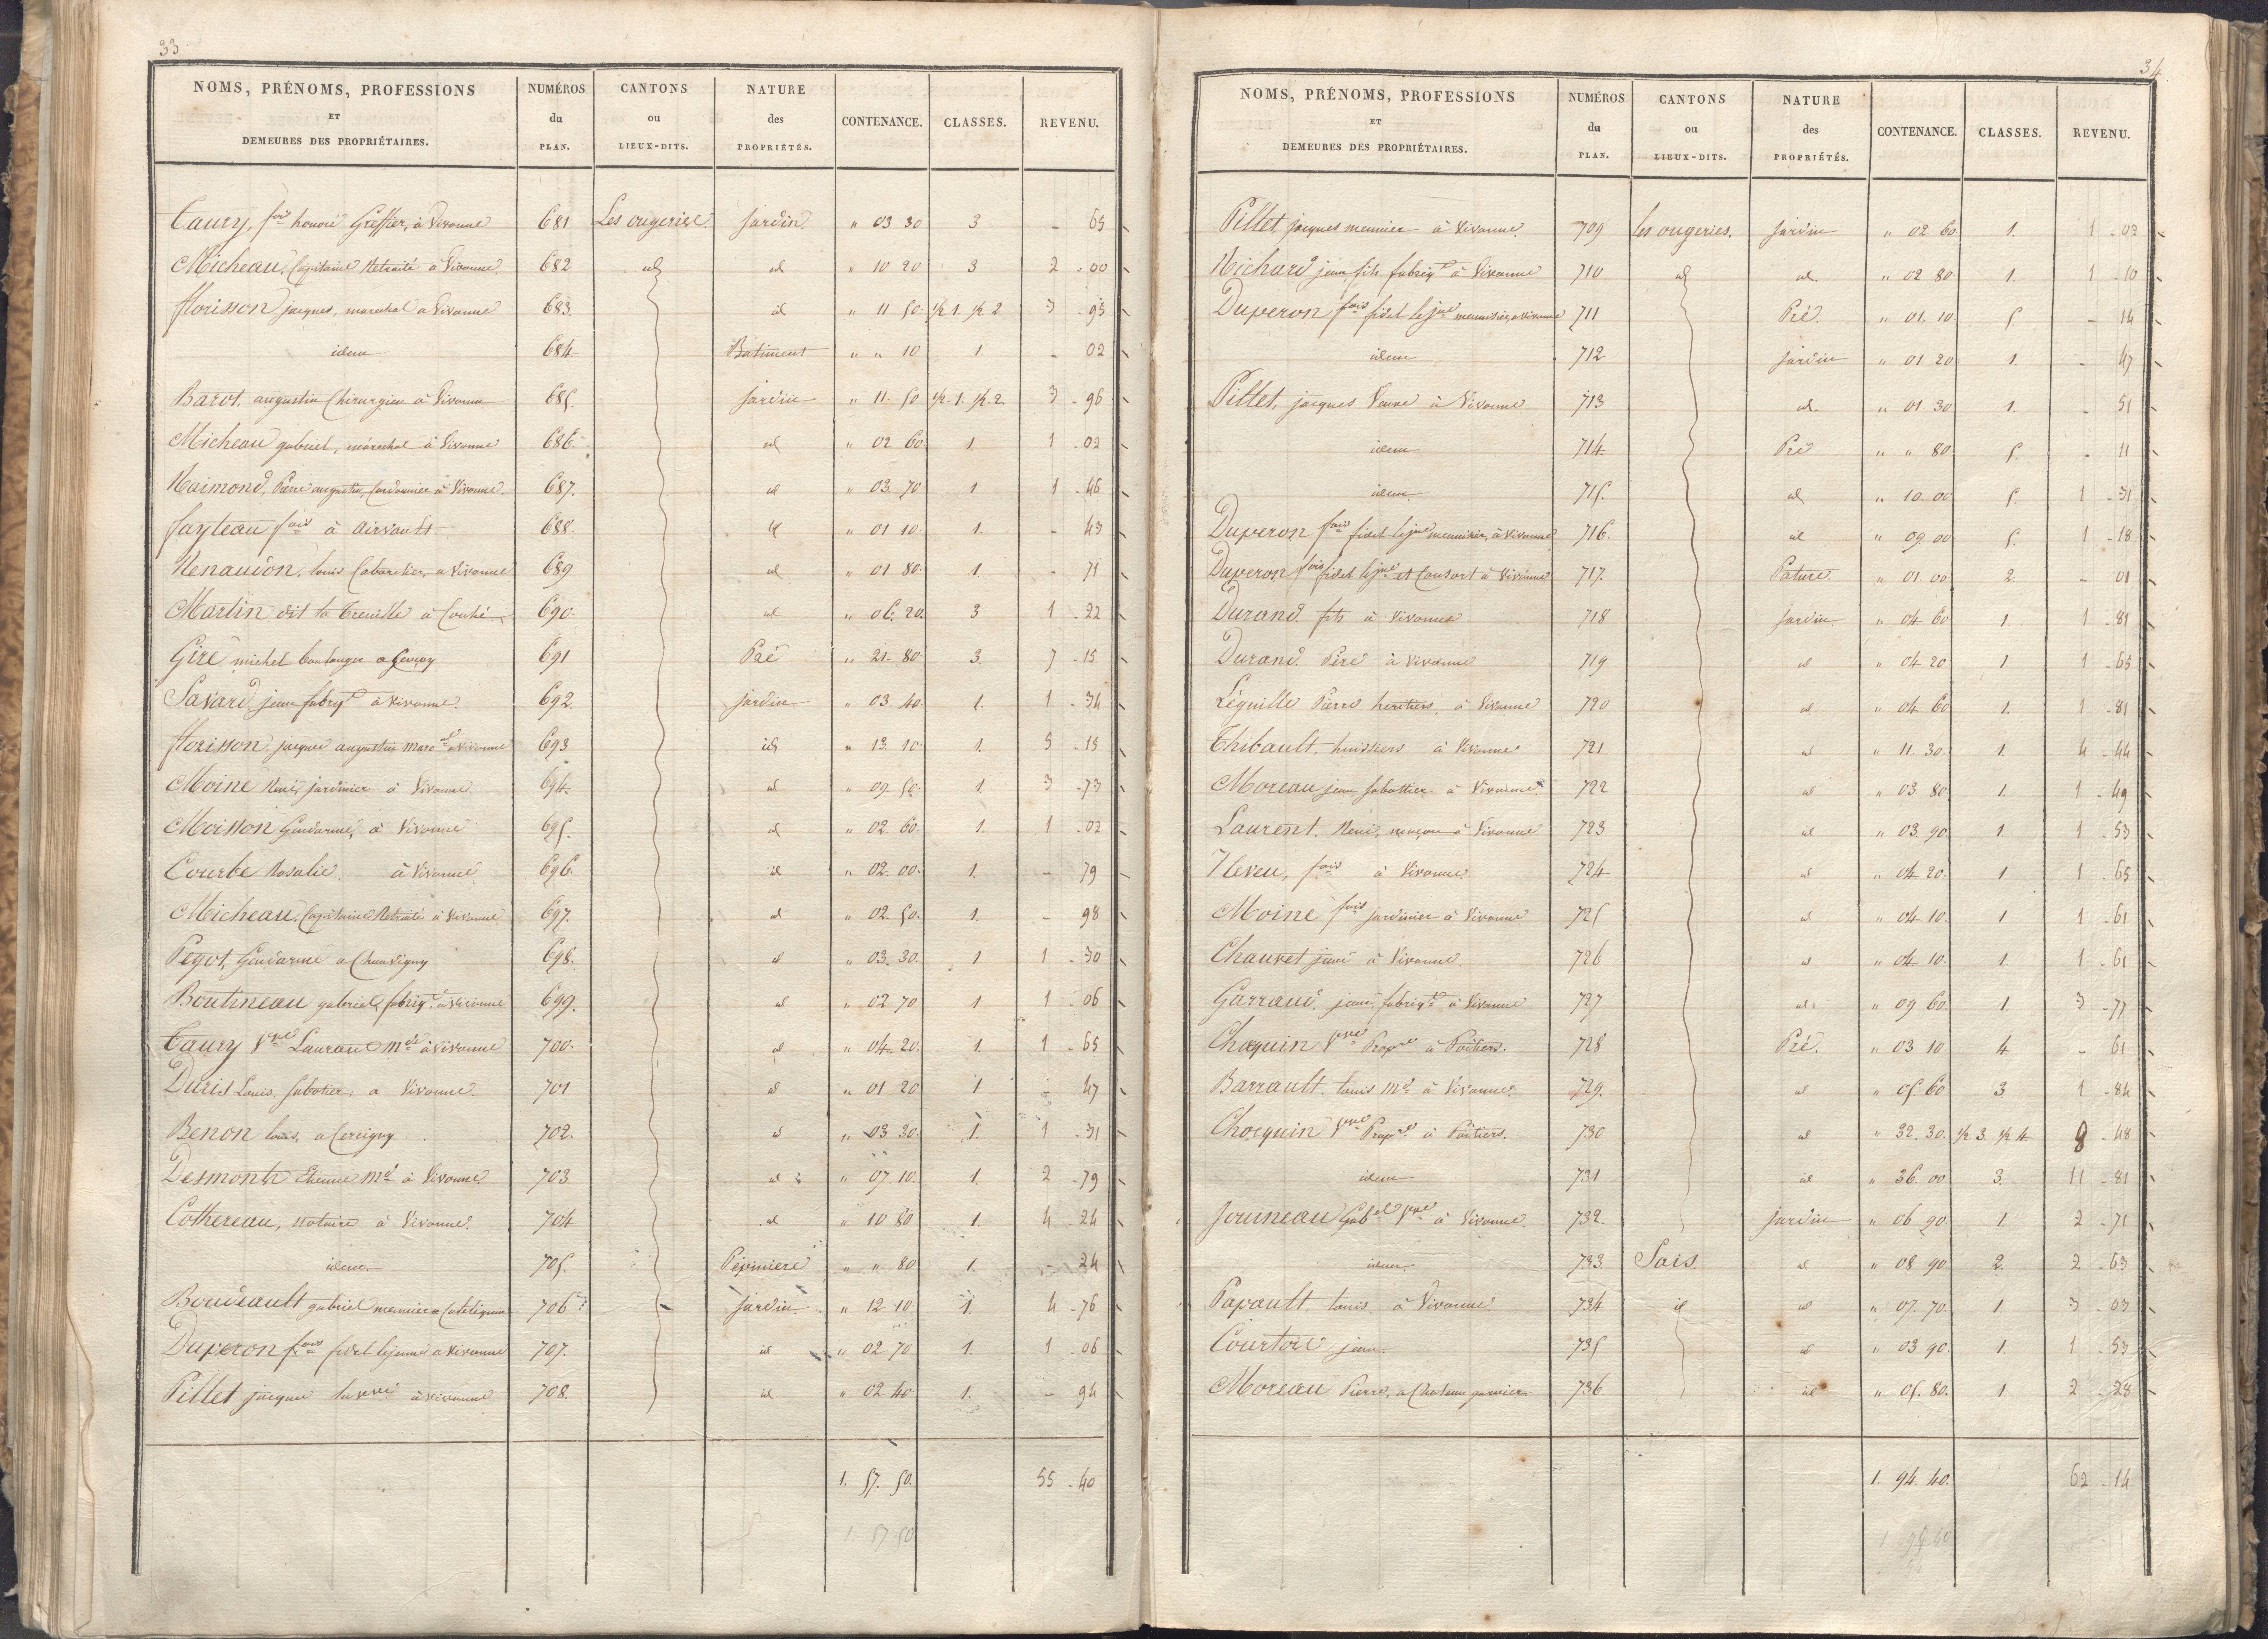 33
NOMS, PRÉNOMS, PROFESSIONS ET DEMEURES DES PROPRIÉTAIRES. NUMÉROS du PLAN. CANTONS ou LIEUX-DITS. NATURE des PROPRIÉTÉS. CONTENANCE. CLASSES. REVENU.
Taury, fois honoré Greffier, à Vivonne 681 Les ougeries. Jardin " 03 30 3 - 65
Micheau, Capitaine Retraité à Vivonne 682 id id " 10 20 3 2 - 00
florisson jacques, marechal a Vivonne 683. id " 11 50 1/2 1. 1/2 2 3 - 95
idem 684 Batiment " " 10 1. - 02
Barot, augustin Chirurgien à Vivonne 685. jardin " 11. 50 1/2 1. 1/2 2. 3 - 96
Micheau gabriel, maréchal à Vivonne 686. id " 02 60. 1. 1 - 02
Raimond, Pierre augustin, Cordonnier à Vivonne. 687. id " 03 70 1 1 - 46
fayteau fois à airvault 688. id " 01 10. 1. - 43
Renaudon, louis Cabaretier, a Vivonne 689 id " 01 80. 1. - 71
Martin dit la treuille à Couhé 690. id " 06. 20. 3 1 - 22
Giré michel boulanger a Gençay 691 Pré " 21. 80. 3. 7 - 15
Savard, jean fabrqt à Vivonne. 692. jardin " 03 40. 1. 1 - 34
florisson, jacques augustin marc al a Vivonne 693 id " 13. 10. 1. 5 - 15
Moine René, jardinier à Vivonne 694. id " 09. 50. 1. 3 - 73
Moisson Gendarme, à Vivonne 695. id " 02. 60. 1. 1 - 02
Courbe Rosalie. à Vivonne 696. id " 02. 00. 1. - 79
Micheau, Capitaine Retraité à Vivonne 697. id " 02. 50. 1. - 98
Pegot, Gendarme a Chauvigny 698. id " 03. 30. 1 1 - 30
Boutineau gabriel, fabriqt a Vivonne 699. id " 02 70 1 1 - 06
Taury Vve Laurant Mde à Vivonne 700. id " 04. 20. 1. 1 - 65
Duris Louis, Sabotier, a Vivonne. 701 id " 01 20 1 - 47
Benon louis, a Cercigny 702. id " 03 30. 1. 1 - 31
Desmonts Etienne Md à Vivonne 703 id " 07 10. 1. 2 - 79
Cothereau, notaire à Vivonne. 704 id " 10 80 1. 4 - 24
idem 705. Pépiniere " " 80 1. - 24
Boudeault gabriel meunier a 706 jardin " 12 10. 1. 4 - 76
Duperon fois fidel lejeune a Vivonne 707. id " 02 70 1. 1 - 06
Pillet jacques à Vivonne 708. id " 02 40 1. - 94
1. 57. 50. 55 - 40
1 57 50
34
NOMS, PRÉNOMS, PROFESSIONS ET DEMEURES DES PROPRIÉTAIRES. NUMÉROS du PLAN. CANTONS ou LIEUX-DITS. NATURE des PROPRIÉTÉS. CONTENANCE. CLASSES. REVENU.
Pillet jacques meunier à Vivonne. 709 les ougeries. Jardin " 02 60 1. 1 - 02
Richard jean, fils fabriqt à Vivonne 710 id id " 02 80 1. 1 - 10
Duperon fois fidel lejne menuisier, a Vivonne 711 Pré. " 01. 10 5. - 14
idem 712 jardin " 01 20 1. - 47
Pillet, jacques Veuve à Vivonne 713 id. " 01 30 1. - 51
idem 714. Pré " " 80 5. - 11
idem 715. id " 10. 00 5. 1 - 31
Duperon fois fidel lejne menuisier, à Vivonne 716. id " 09. 00 5. 1 - 18
Duperon fois fidel lejne et Consort à Vivonne 717. Pature " 01 00 2. - 01
Durand fils à Vivonne 718 Jardin " 04 60 1. 1 - 81
Durand Père à Vivonne 719 id " 04 20 1. 1 - 65
Léguille Pierre heritiers, à Vivonne 720 id " 04 60 1. 1 - 81
Thibault huissiers à Vivonne 721 id " 11. 30. 1. 4 - 44
Moreau jean Sabottier à Vivonne. 722 id " 03 80. 1. 1 - 49
Laurent, René, maçon à Vivonne 723 id " 03 90 1 1 - 53
Neveu, fois à Vivonne. 724 id " 04. 20. 1 1 - 65
Moine fois jardinier à Vivonne 725 id " 04. 10. 1 1 - 61
Chauvet à Vivonne. 726 id " 04 10. 1. 1 - 61
Garraud jean, fabriqt à Vivonne 727 id. " 09 60. 1. 3 - 77
Choquin Vve Propre à Poitiers. 728 Pré. " 03 10 4 - 61
Barrault, louis Md à Vivonne. 729. id " 05. 60 3 1 - 84
Chocquin Vve Propre à Poitiers. 730 id " 32. 30. 1/2 3. 1/2 4. 8 - 48
idem 731 id " 36. 00. 3. 11 - 81
Jouineau Gabel Vve à Vivonne 732. jardin " 06 90. 1. 2 - 71
idem 733. Sais. id " 08 90 2. 2 - 63
Papault, louis à Vivonne 734 id id " 07. 70. 1. 3 - 03
Courtois jean 735 id " 03 90. 1. 1 - 53
Moreau Pierre, a Chateau garnier 736 id " 05. 80. 1. 2 - 28
1. 94. 40. 62 - 14